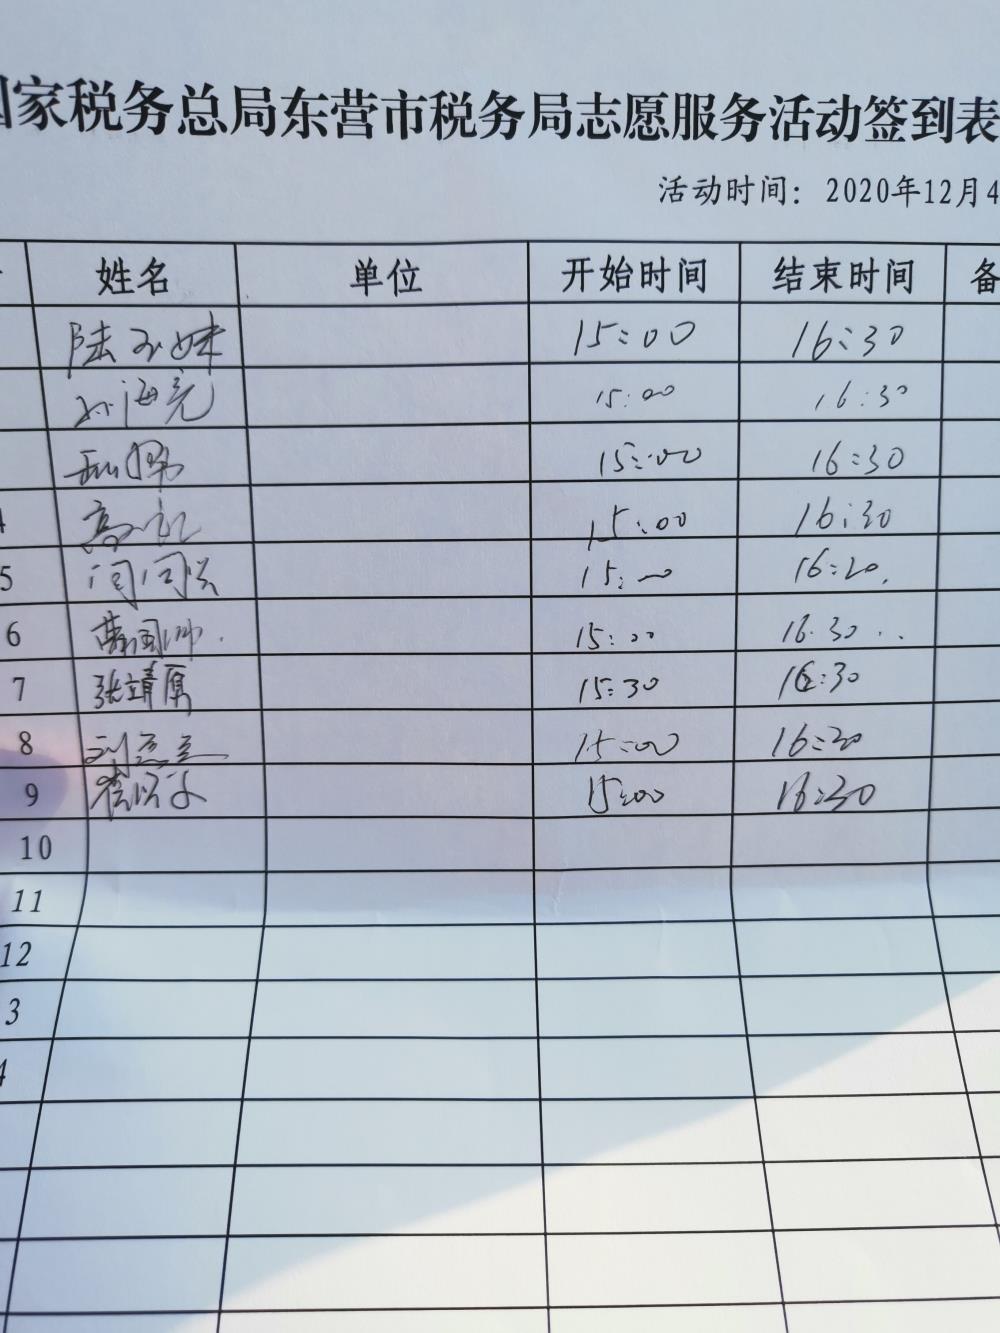 国家税务总局东营市税务局志愿服务活动签到表
活动时间：2020年12月4
姓名 单位 开始时间 结束时间 备
陆玉妹 15:00 16:30
孙海亮 15:00 16:30
15:00 16:30
4 高 15:00 16:30
5 闫 15:00 16:20
6 国帅 15:00 16:30
7 张靖原 15:30 16:30
8 刘 15:00 16:20
9 崔 15:00 16:30
10
11
12
3
4